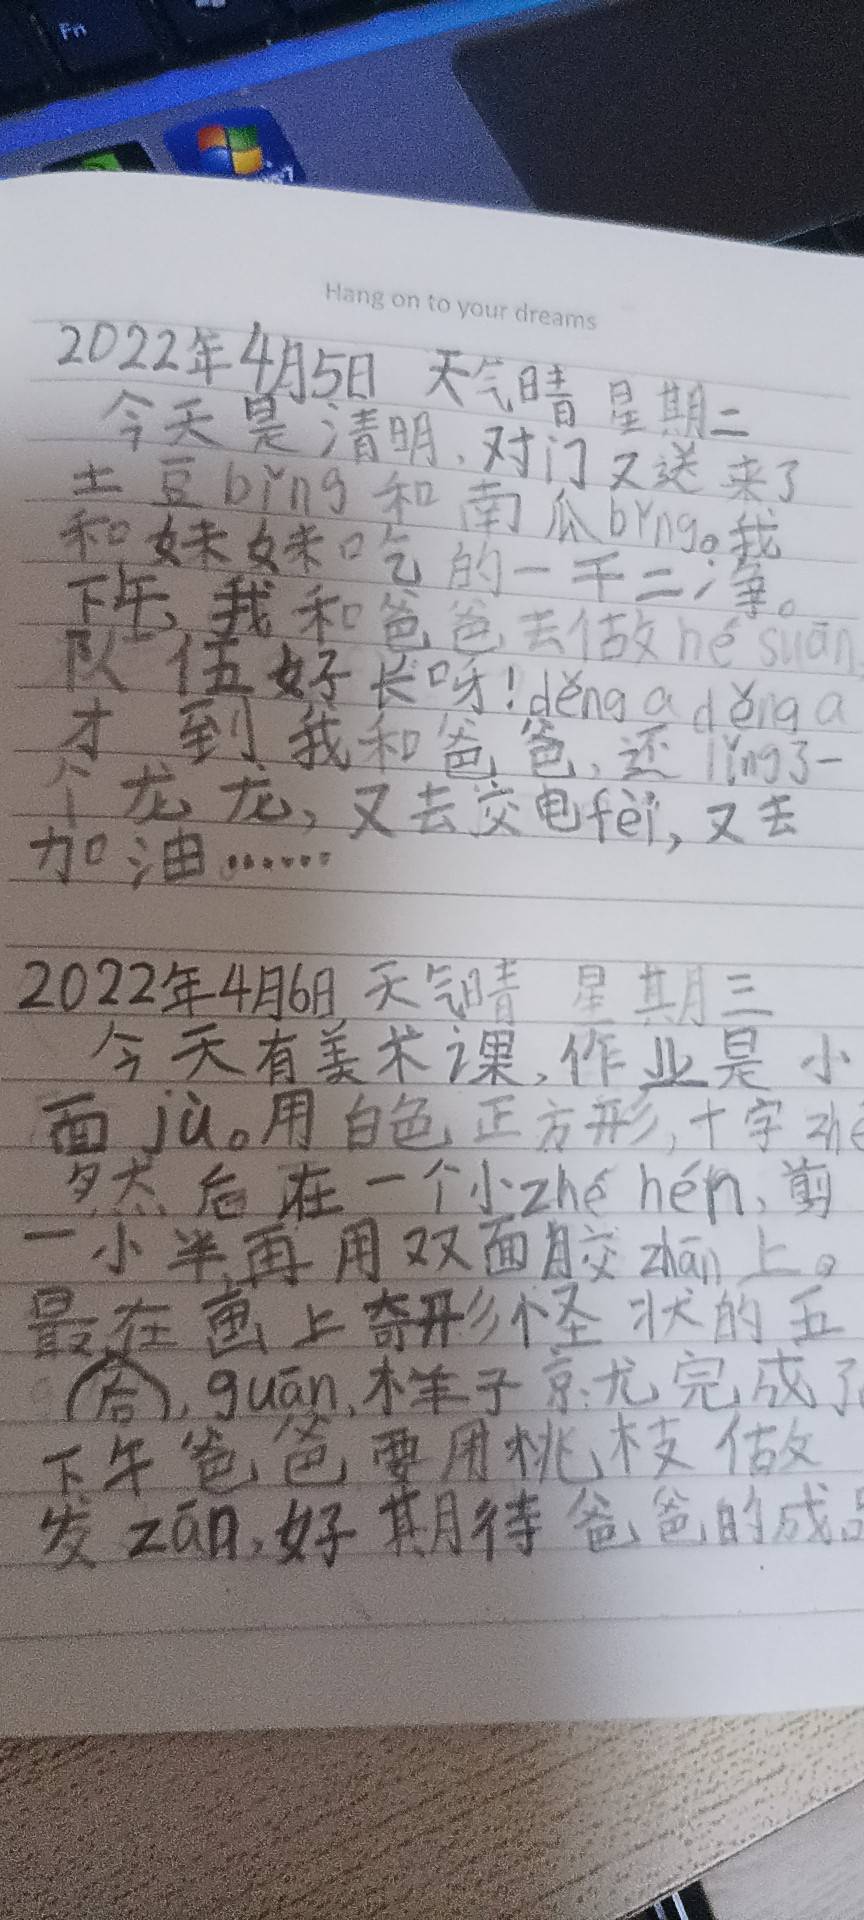 Fn
Hang on to your dreams
2022年4月5日 天气晴 星期二
今天是清明、对门又送来了
土豆bǐng和南瓜bǐng。我
和妹妹吃的一干二净。
下午,我和爸爸去做hé suān,
队伍好长呀!děng a děng a
才到我和爸爸,还lǐng了一
个龙龙,又去交电fèi,又去
加油……
2022年4月6日 天气晴 星期三
今天有美术课,作业是小
面jù。用白色正方形,十字zhé
然后在一个小zhé hén、剪
一小半再用双面胶zhān上。
最在画上奇形怪状的五
(合),guān,样子京尤完成了
下午爸爸要用桃枝做
发zān,好期待爸爸的成品